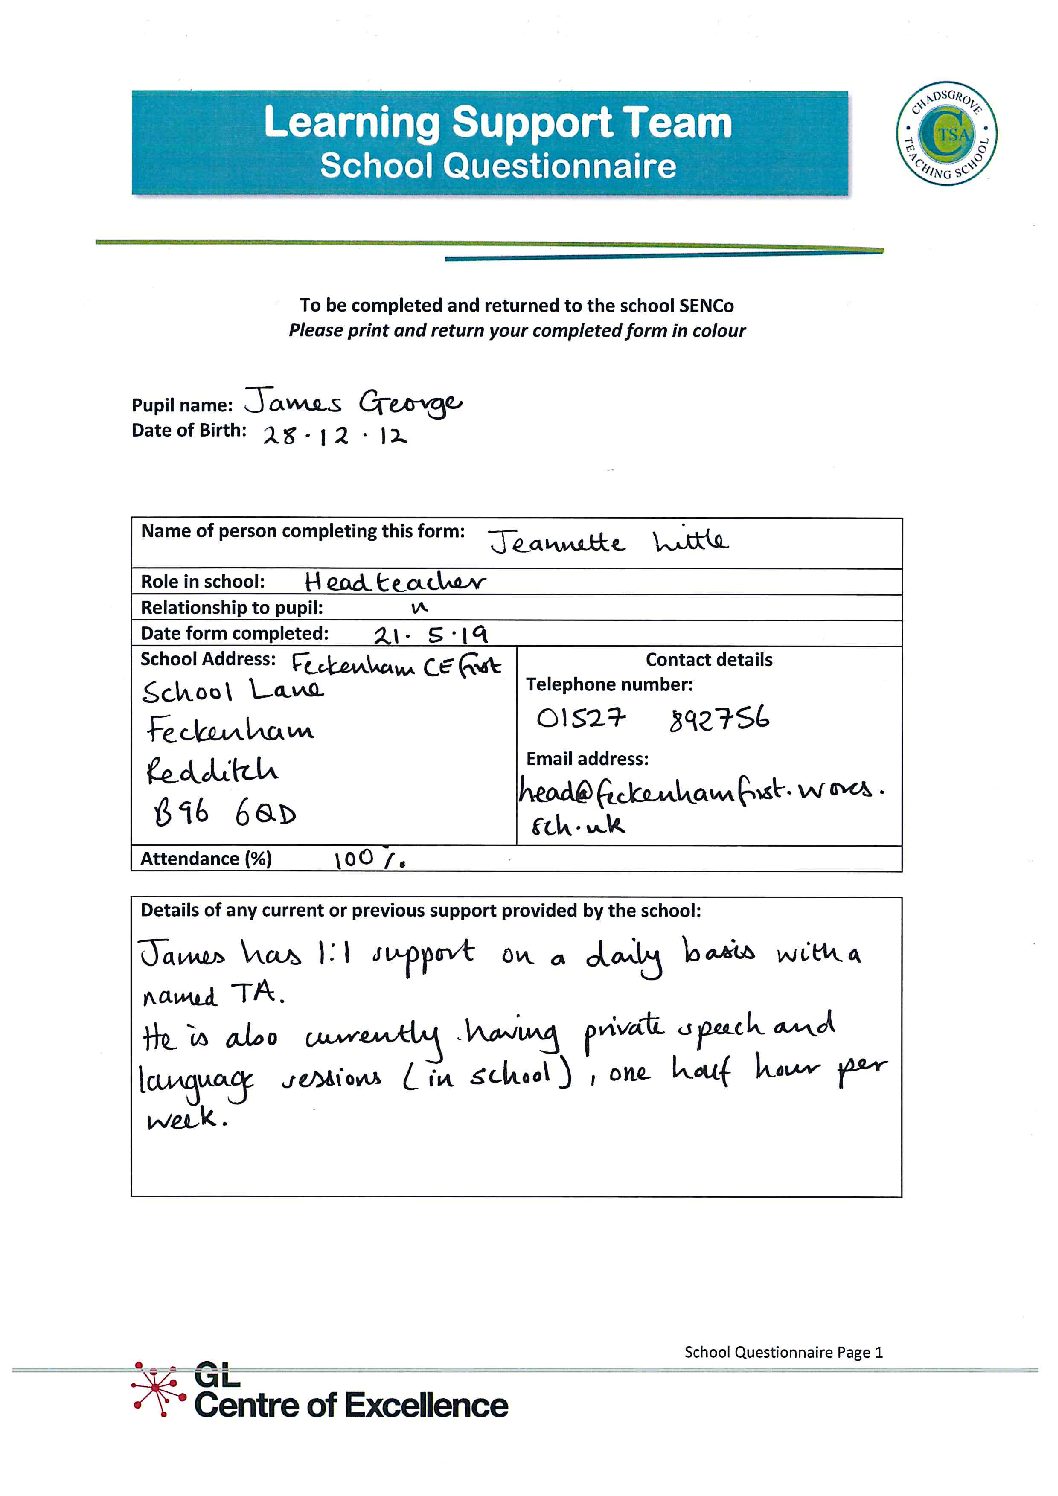 Learning Support Team
School Questionnaire
CHADSGROVE
TSA
TEACHING SCHOOL
To be completed and returned to the school SENCo
Please print and return your completed form in colour
Pupil name: James George
Date of Birth: 28.12.12
Name of person completing this form: Jeannette Little
Role in school: Headteacher
Relationship to pupil: "
Date form completed: 21. 5.19
School Address: Feckenham CE First
School Lane
Feckenham
Redditch
B96 6QD
Contact details
Telephone number:
01527 892756
Email address:
head@feckenhamfirst.worcs.
sch.uk
Attendance (%) 100%.
Details of any current or previous support provided by the school:
James has 1:1 support on a daily basis with a
named TA.
He is also currently having private speech and
language sessions (in school), one half hour per
week.
School Questionnaire Page 1
GL
Centre of Excellence